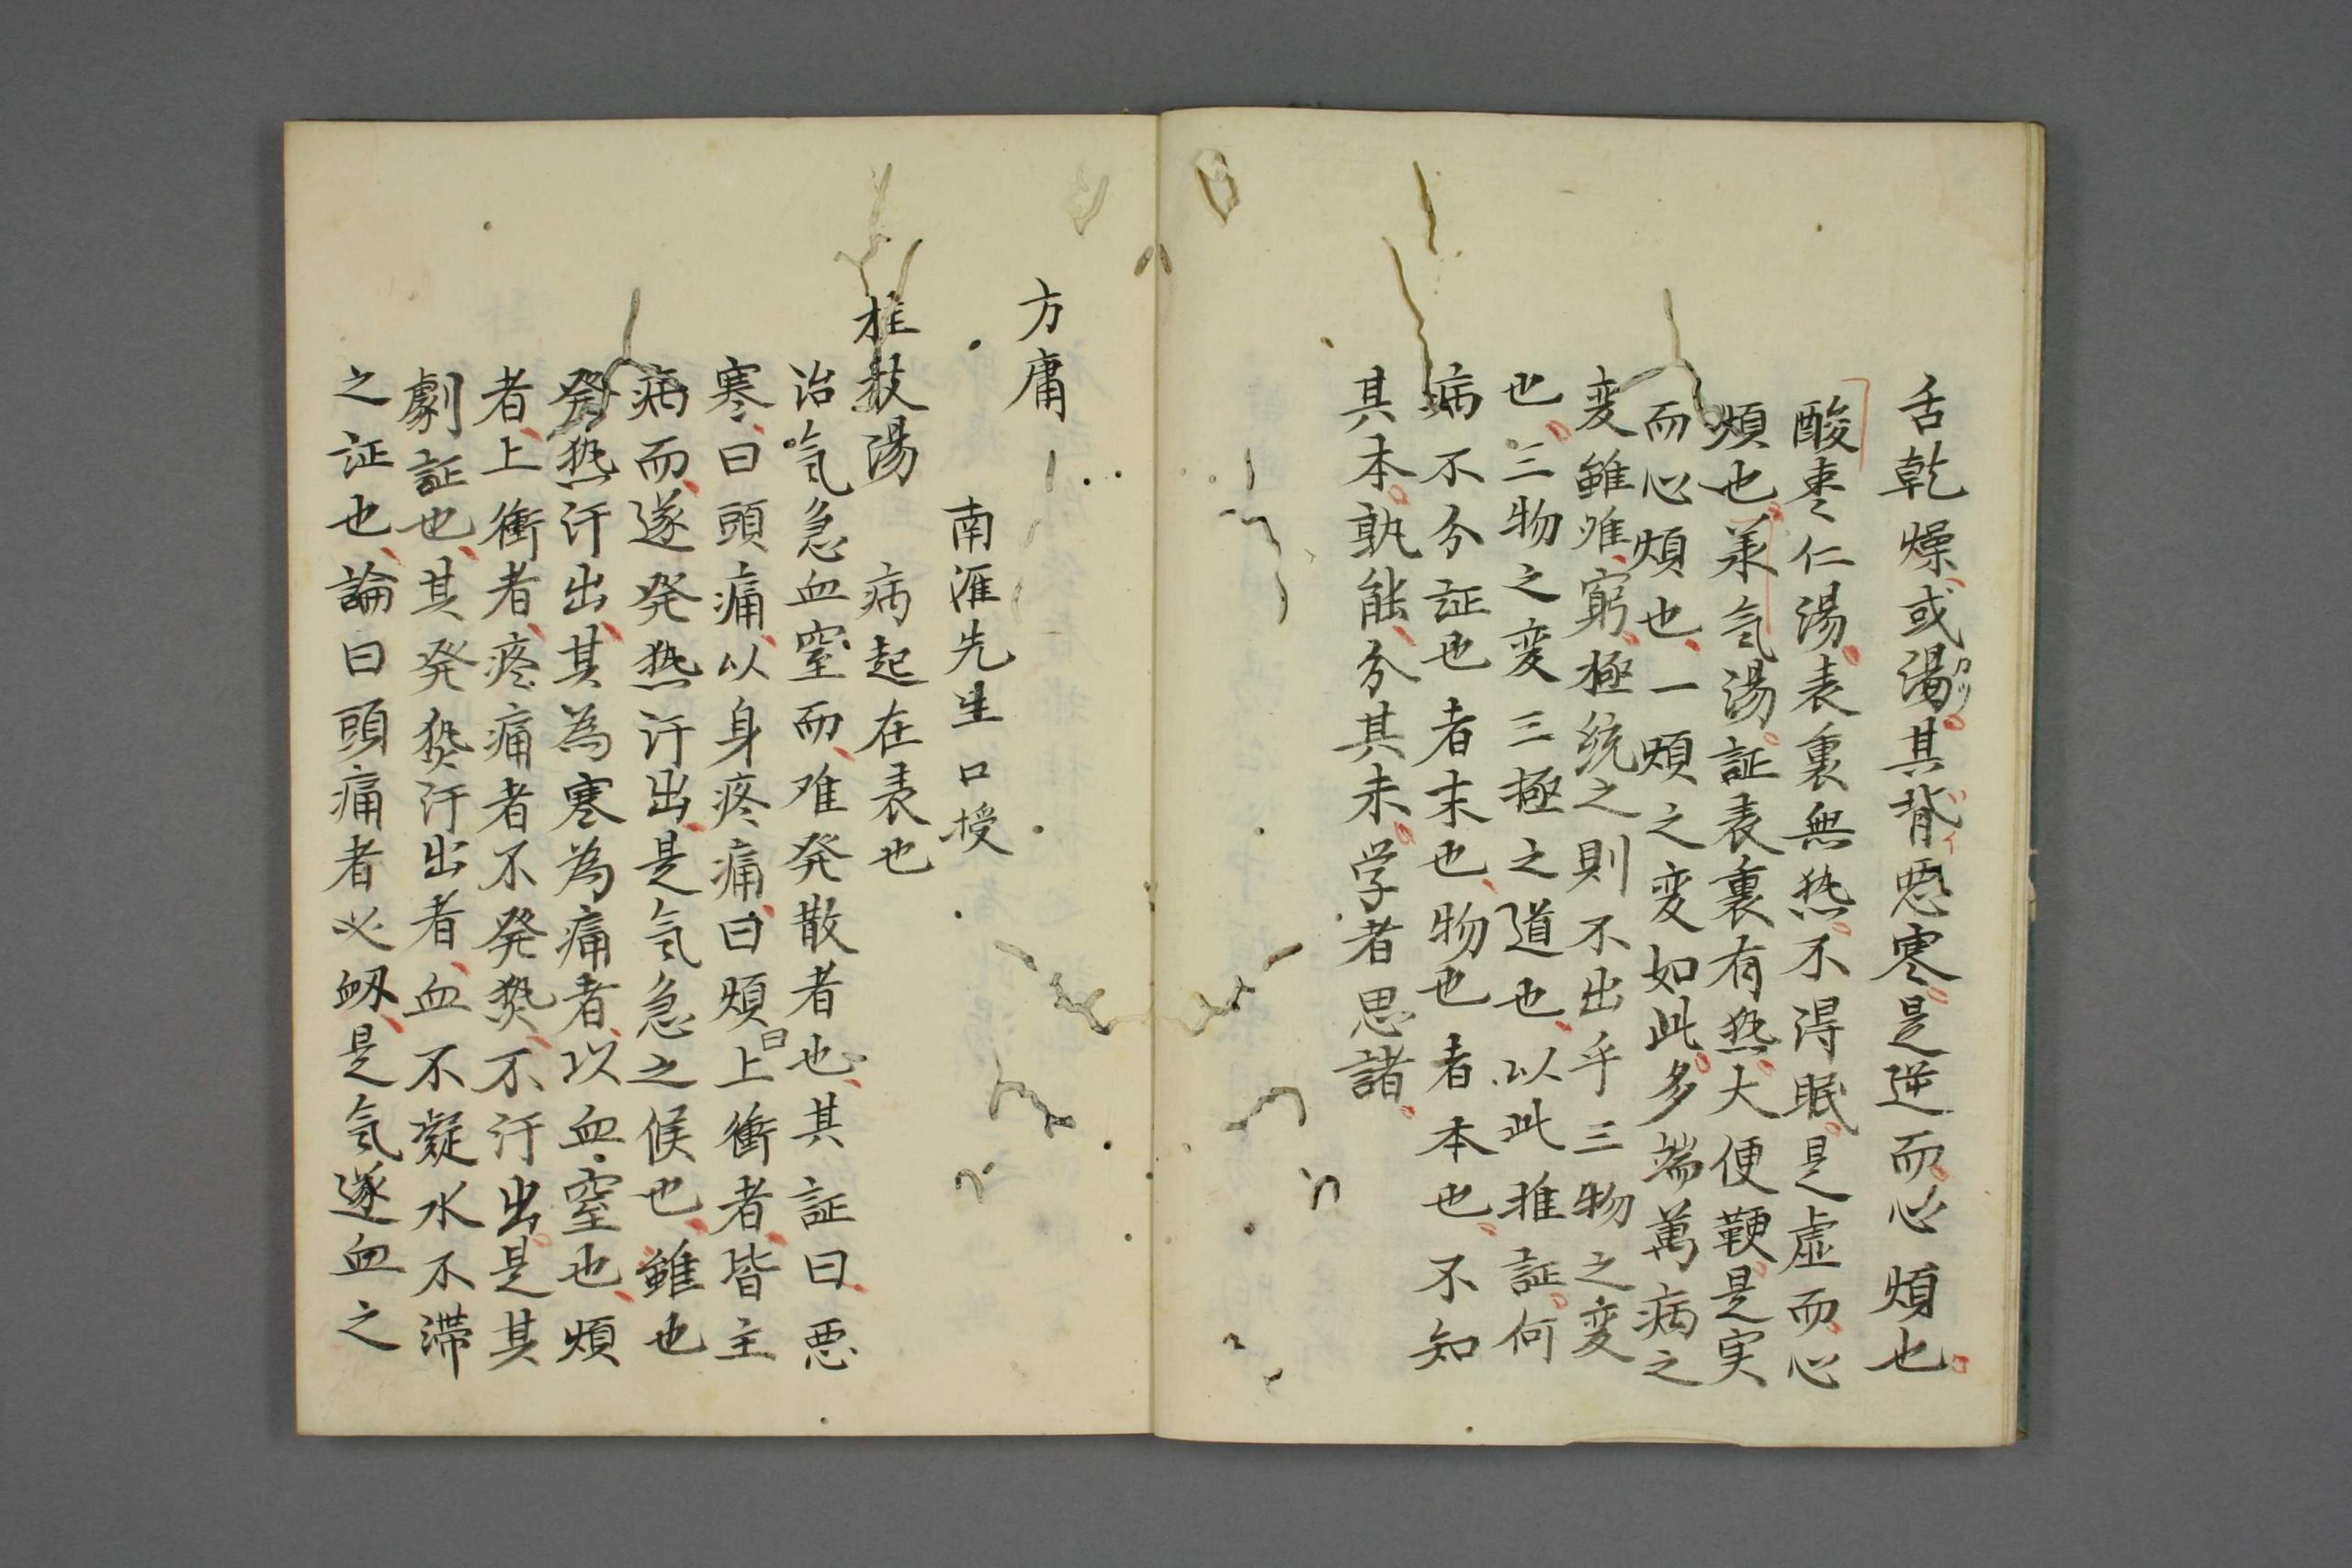 舌乾燥或湯カツ其背悪寒是逆而心煩也
酸枣仁湯表裏無热不得眠是虚而心
煩也承気湯証表裏有热大便鞕是実
而心煩也一煩之変如此多端萬病之
変雖难窮極统之則不出乎三物之変
也三物之変三極之道也以此推証何
病不分証也者末也物也者本也不知
其本孰能分其末学者思諸
方庸
南涯先生口授
桂枝湯　病起在表也
治気急血窒而难発散者也其証曰悪
寒曰頭痛以身疼痛曰煩曰上衝者皆主
病而遂発热汗出是気急之候也雖也
発热汗出其為寒為痛者以血窒也煩
者上衝者疼痛者不発热不汗出是其
劇証也其発热汗出者血不凝水不滞
之証也論曰頭痛者必衂是気遂血之